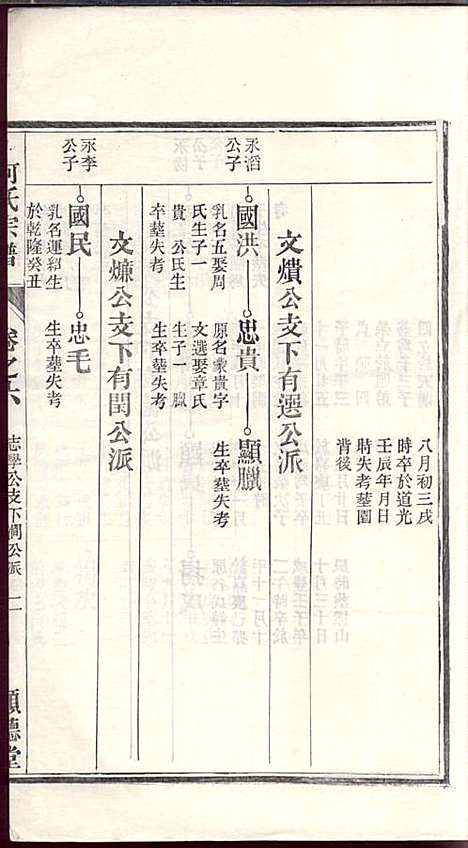 八月初三戌
時卒於道光
壬辰年月日
時失考塟園
背後
文燌公支下有選公派
永滔
公子
國洪
乳名五娶周
氏生子一
貴 公氏生
卒塟失考
忠貴
原名象貴字
文選娶章氏
生子一 臘
生卒塟失考
顯臘
生卒塟失考
文㷳公支下有閏公派
永李
公子
國民
乳名運紹生
於乾隆癸丑
忠毛
生卒塟失考
何氏宗譜
卷之六
志學公支下潤公派
順德堂